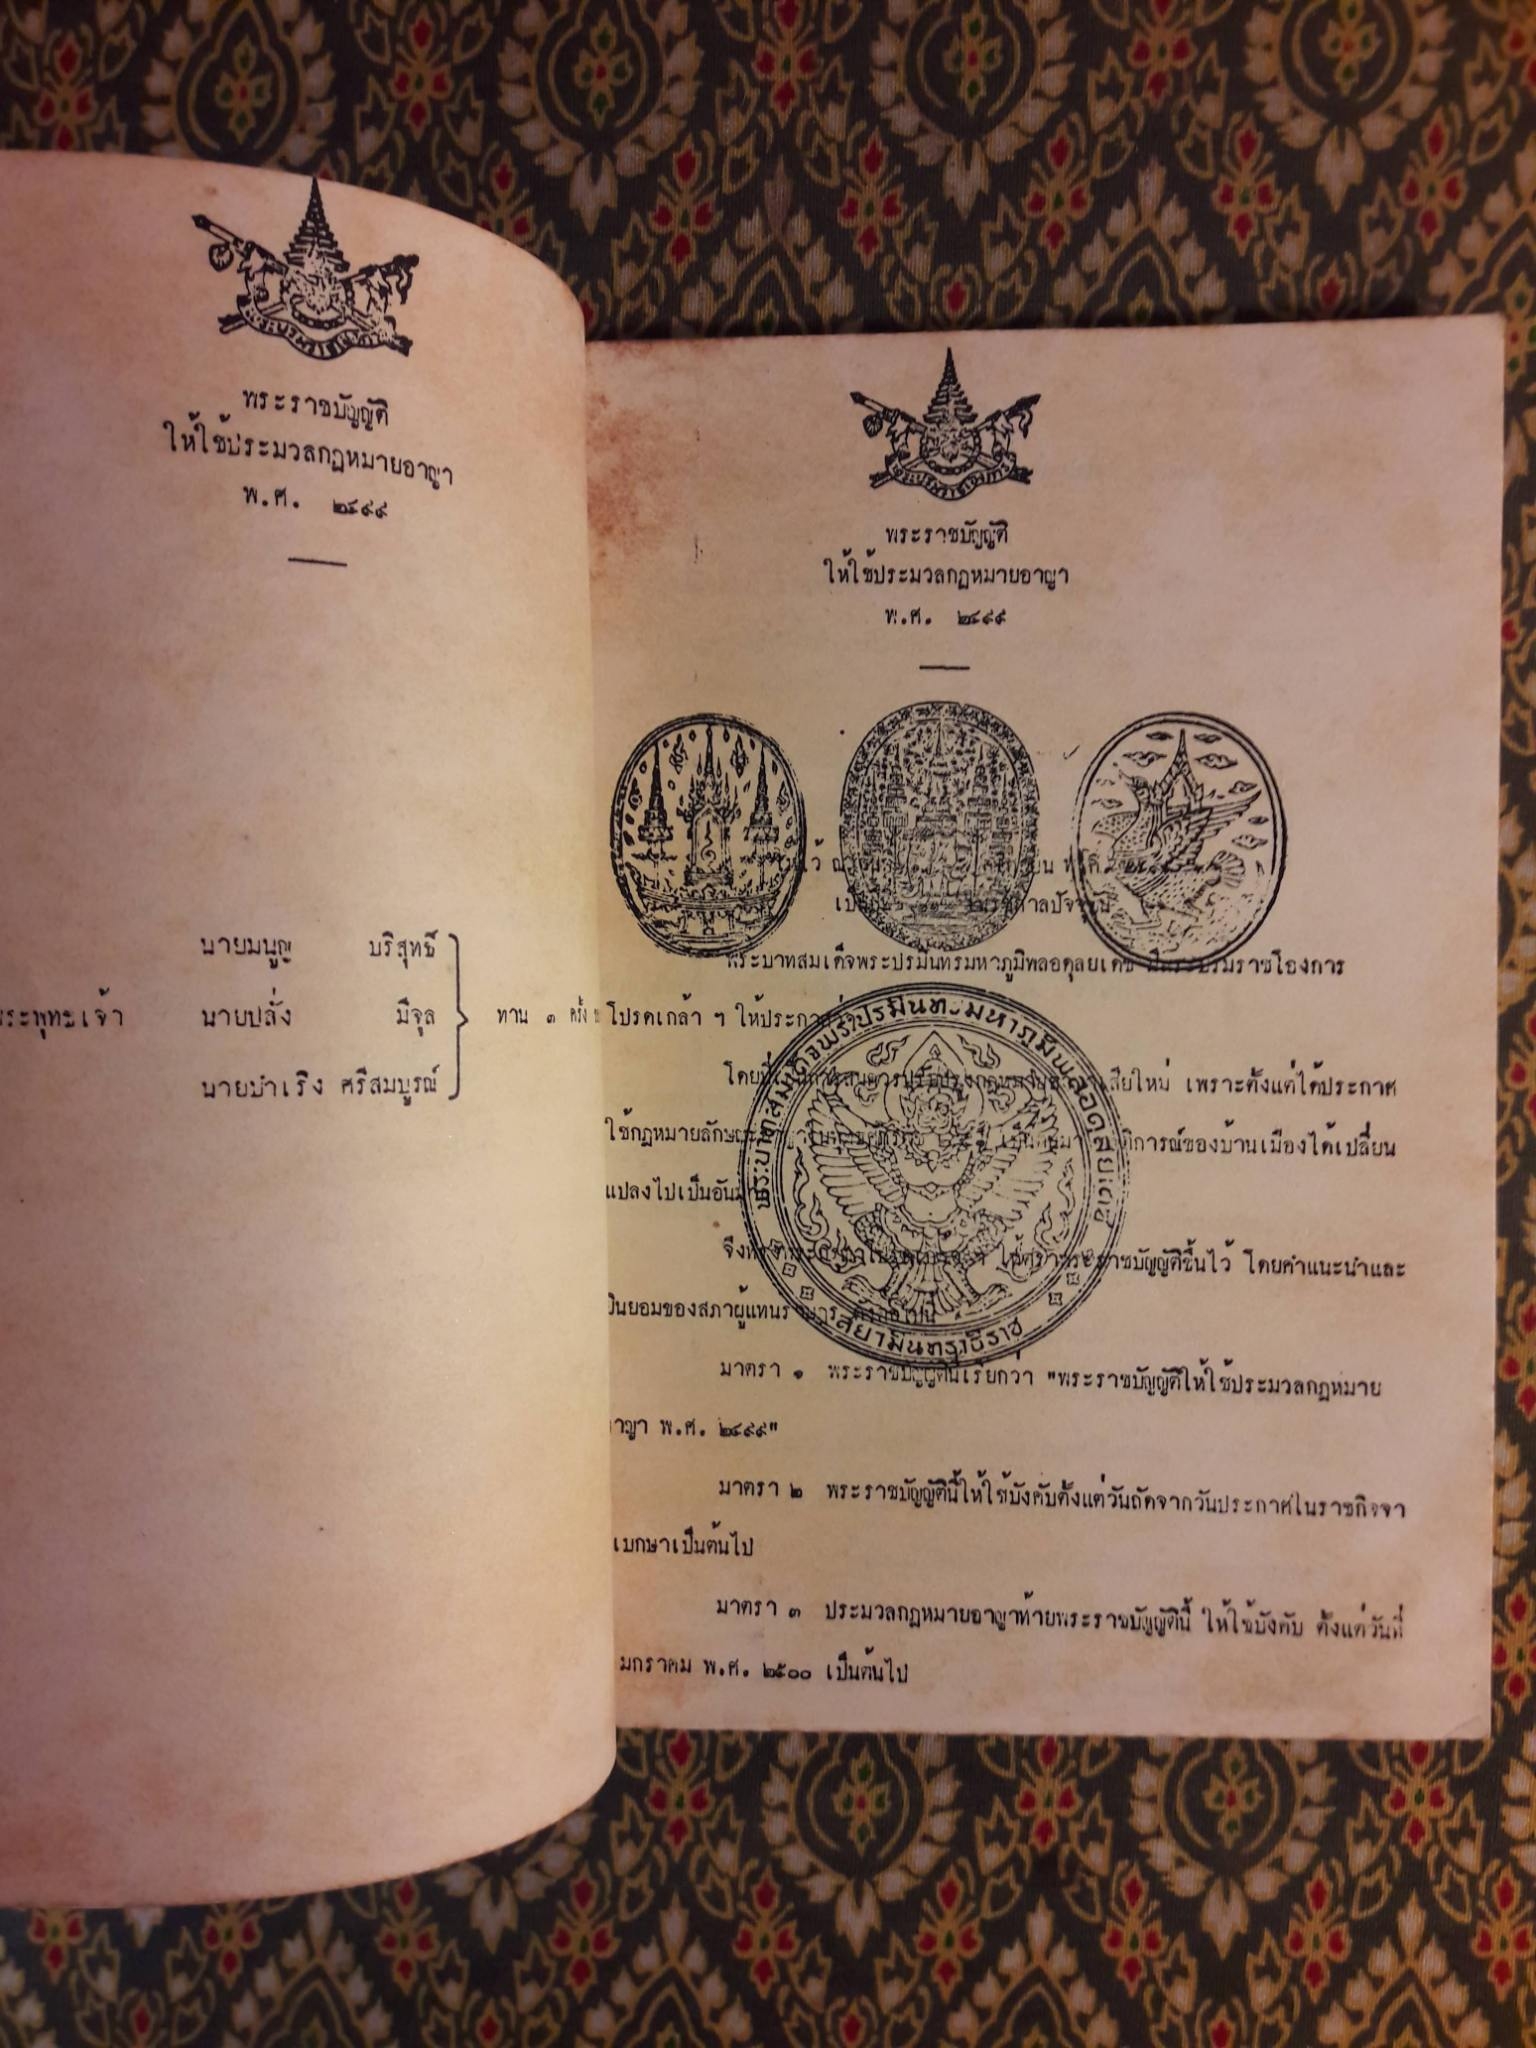 พระราชบัญญัติ
ให้ใช้ประมวลกฎหมายอาญา
พ.ศ. ๒๔๙๙
นายมนูญ บริสุทธิ์
พระพุทธเจ้า นายปลั่ง มีจุล ทาน ๓ ครั้ง
นายบำเริง ศรีสมบูรณ์
พระบรมราชโองการ
พระราชบัญญัติ
ให้ใช้ประมวลกฎหมายอาญา
พ.ศ. ๒๔๙๙
พระบาทสมเด็จพระปรมินทรมหาภูมิพลอดุลยเดช มีพระบรมราชโองการ
โปรดเกล้า ฯ ให้ประกาศว่า
พระบาทสมเด็จพระปรมินทรมหาภูมิพลอดุลยเดช
สยามินทราธิราช
โดยที่ เสียใหม่ เพราะตั้งแต่ได้ประกาศ
ใช้กฎหมายลักษณะ ของบ้านเมืองได้เปลี่ยน
แปลงไปเป็นอันมาก
พระราชบัญญัติขึ้นไว้ โดยคำแนะนำและ
ยินยอมของสภาผู้แทนราษฎร ดังต่อไปนี้
มาตรา ๑ พระราชบัญญัตินี้เรียกว่า "พระราชบัญญัติให้ใช้ประมวลกฎหมาย
อาญา พ.ศ. ๒๔๙๙"
มาตรา ๒ พระราชบัญญัตินี้ให้ใช้บังคับตั้งแต่วันถัดจากวันประกาศในราชกิจจา
นุเบกษาเป็นต้นไป
มาตรา ๓ ประมวลกฎหมายอาญาท้ายพระราชบัญญัตินี้ ให้ใช้บังคับ ตั้งแต่วันที่
มกราคม พ.ศ. ๒๕๐๐ เป็นต้นไป